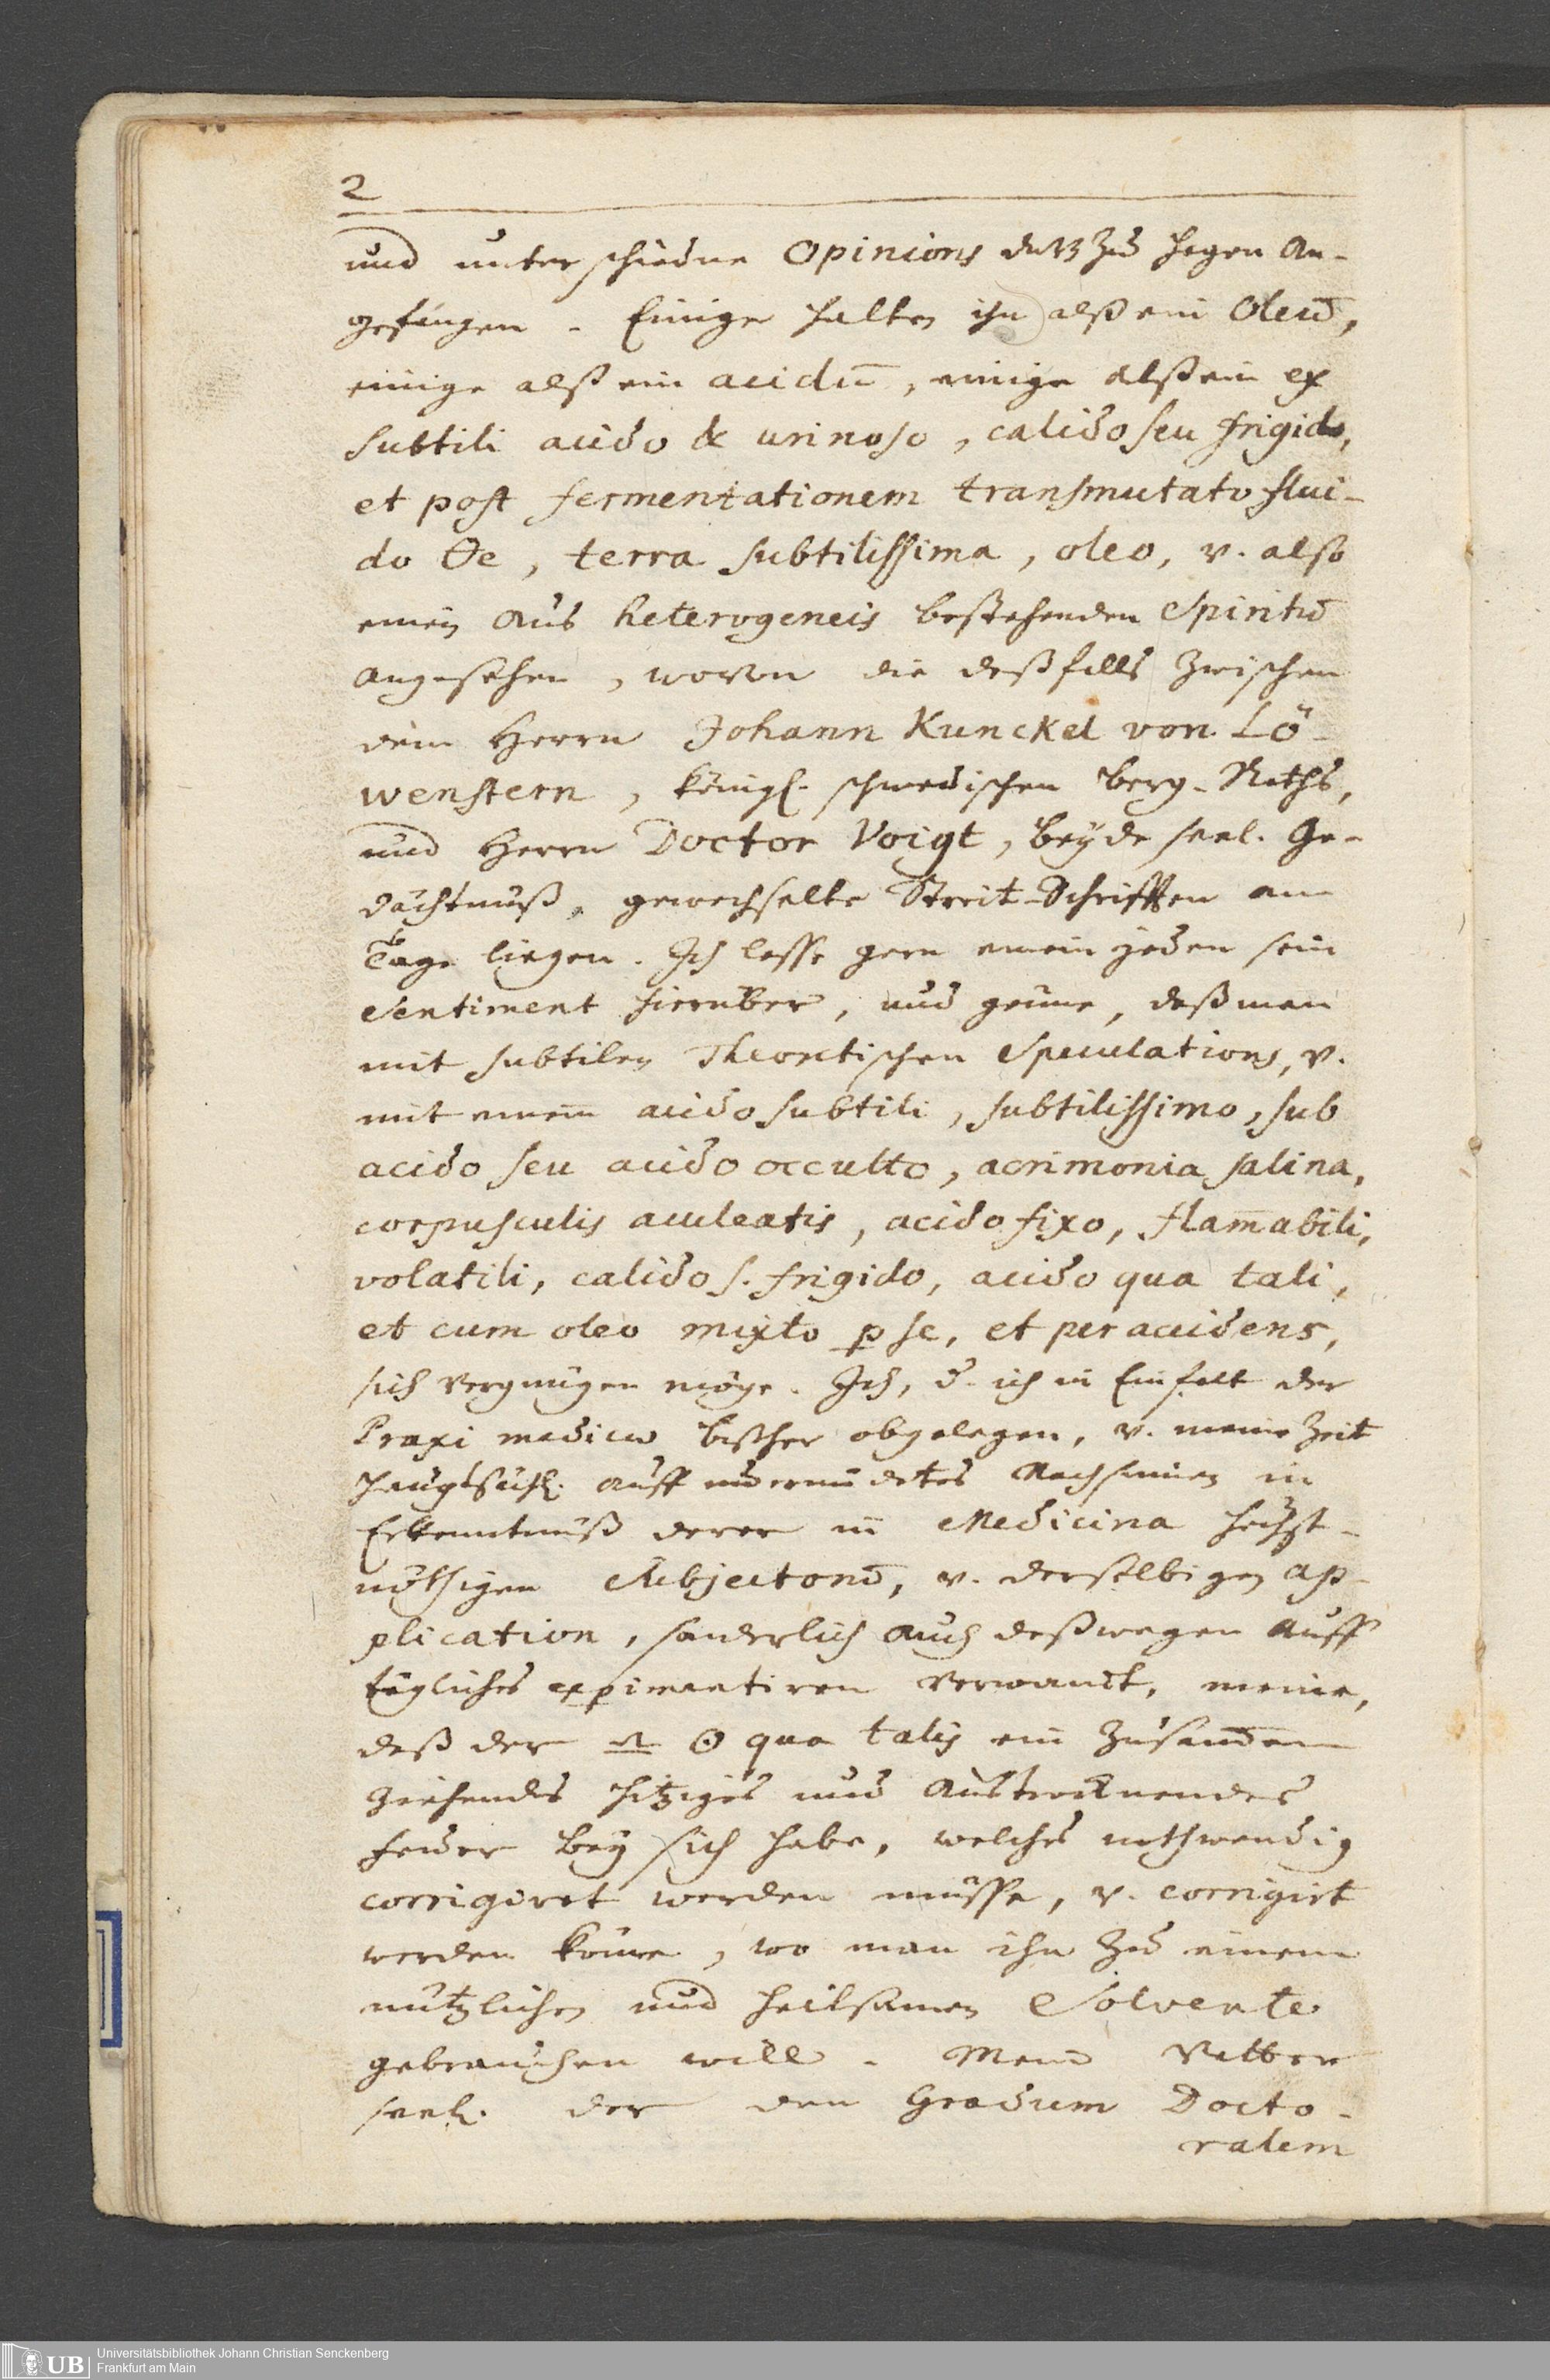 2
und unterschiedne Opinions darzu hegen an-
gefangen. Einige halten ihn alß ein Oleū,
einige alß ein acidū, einige alß ein ex
subtili acido & urinoso, calido seu frigido,
et post fermentationem transmutato flui-
do θe, terra subtilissima, oleo, v. also
einen aus heterogeneis bestehenden Spiritū
angesehen, wovon die deßfalls zwischen
dem Herrn Johann Kunckel von Lö-
wenstern, königl. schwedischen Berg-Raths,
und Herrn Doctor Voigt, beyde seel. Ge-
dächtnuß, gewechselte Streit-Schrifften am
Tage liegen. Ich lasse gern einem jeden sein
Sentiment hierüber, und geüne, daß man
mit subtilen Theoretischen Speculations, v.
mit einem acido subtili, subtilissimo, sub
acido seu acido occulto, acrimonia salina,
corpusculis aculeatis, acido fixo, flam̄abili,
volatili, calido s. frigido, acido qua tali,
et cum oleo mixto p se, et per accidens,
sich vergnügen möge. Ich, d. ich in Einfalt der
Praxi medica bißher obgelegen, v. meine Zeit
hauptsächl. auff unermüdetes Nachsinnen in
Erkenntnuß derer in Medicina höchst-
nöthigen Subjectorū, v. derselbigen ap-
plication, sonderlich auch deßwegen auff
tägliches expimentiren verwandt, meine,
daß der ⍺ ☉ qua talis ein zusam̄en
ziehendes hitziges und austrocknendes
feuer bey sich habe, welches nothwendig
corrigiret werden müsse, v. corrigirt
werden könne, wo man ihn zu einem
nützlichen und heilsamen Solvente
gebrauchen will. Mein Vatter
seel. der den Gradum Docto-
ralem
UB Universitätsbibliothek Johann Christian Senckenberg
Frankfurt am Main